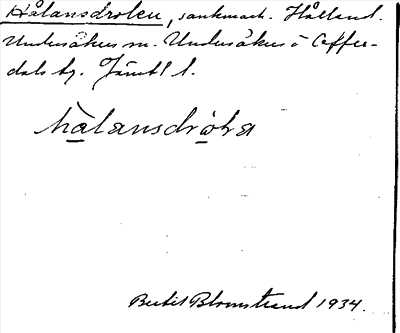 Hålansdrolen, sankmark. Hålland.
Undersåkers sn. Undersåkers o Offer-
dals tg. Jämtl l.
hålansdròra
Bertil Blomstrand 1934.